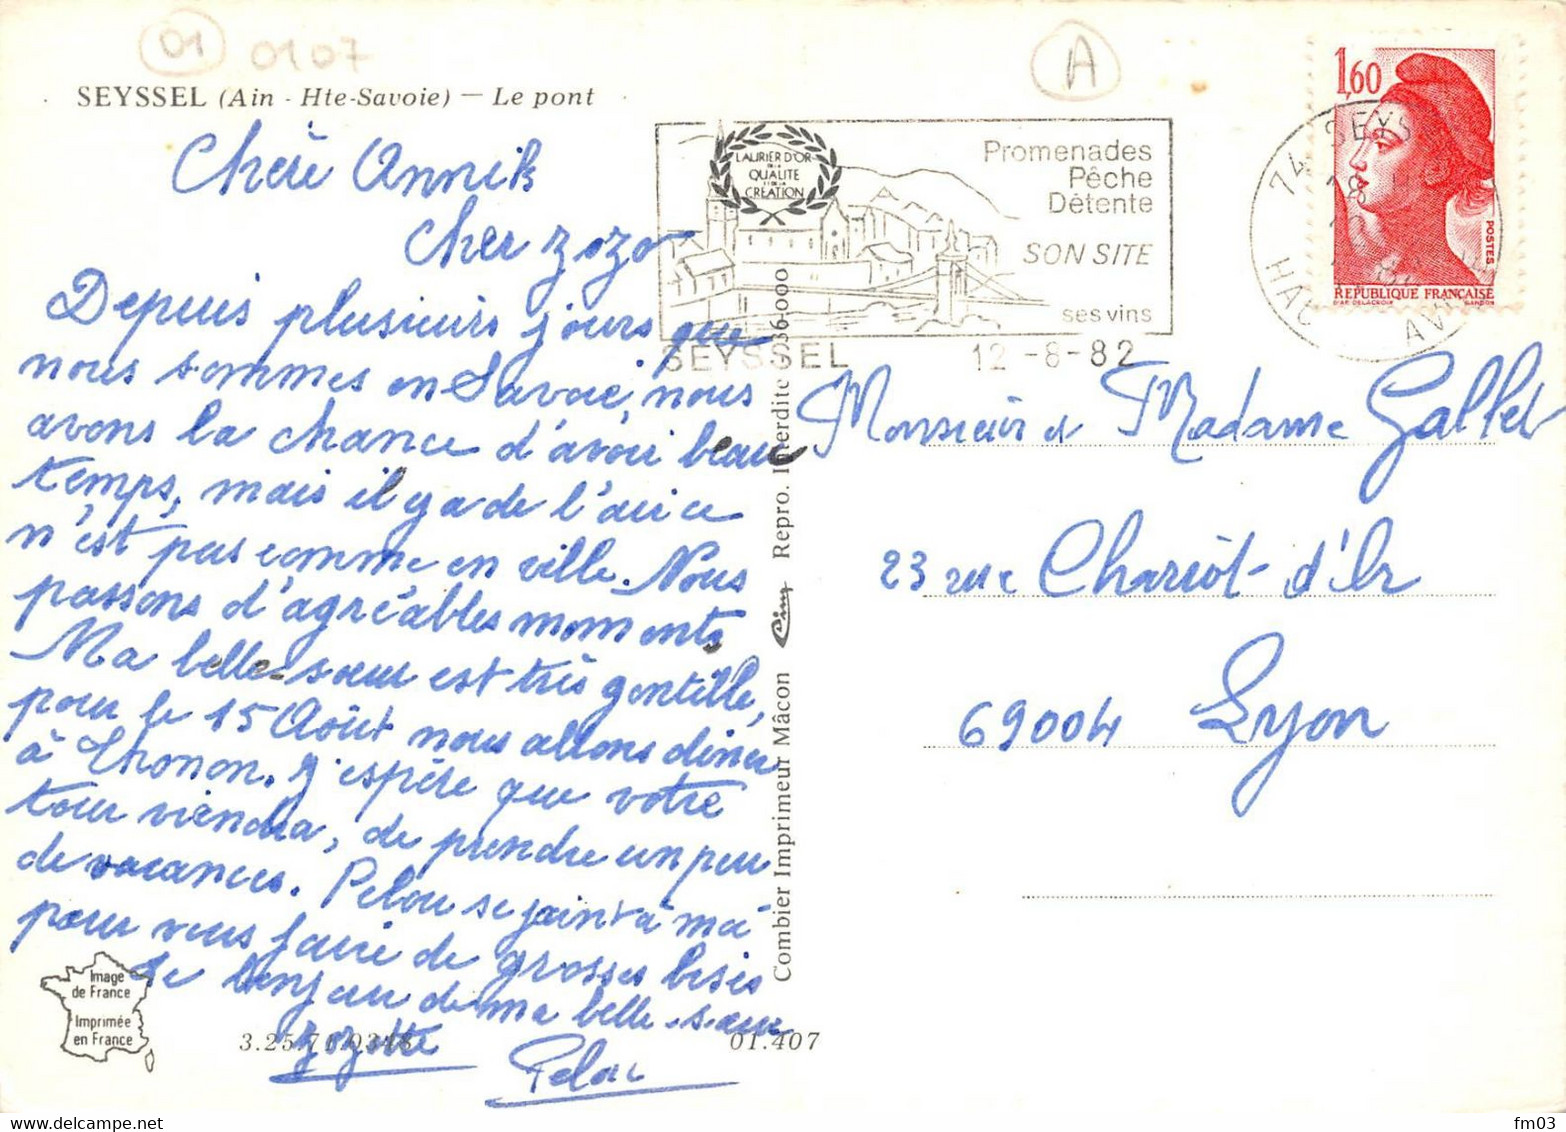 01 0107
A
SEYSSEL (Ain - Hte-Savoie) — Le pont
Chère Annik
Cher Zozo
Depuis plusieurs jours que
nous sommes en Savoie, nous
avons la chance d'avoir beau
temps, mais il y a de l'air ce
n'est pas comme en ville. Nous
passons d'agréables moments
Ma belle-sœur est très gentille,
pour le 15 Août nous allons dîner
à Thonon. J'espère que votre
tour viendra, de prendre un peu
de vacances. Pelou se joint à moi
pour vous faire de grosses bises
Le bonjour de ma belle-sœur
Zozotte
Pelou
Image
de France
Imprimée
en France
3.25.71.0348
01.407
Combier Imprimeur Mâcon Cim Repro. Interdite 036-000
LAURIER D'OR
DE LA
QUALITE
ET DE LA
CREATION
Promenades
Pêche
Détente
SON SITE
ses vins
SEYSSEL 12-8-82
74 SEYS
18
HAU AV
1,60
POSTES
REPUBLIQUE FRANÇAISE
D'AP. DELACROIX GANDON
Monsieur et Madame Gallet
23 rue Chariot-d'Or
69004 Lyon
delcampe.net
fm03